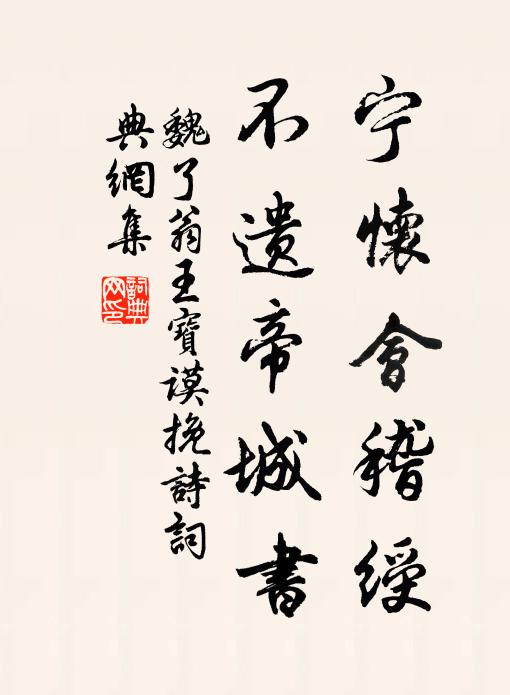 宁懷會稽綬
不遺帝城書
魏了翁王寶謨挽詩詞
典網集
詞典網印